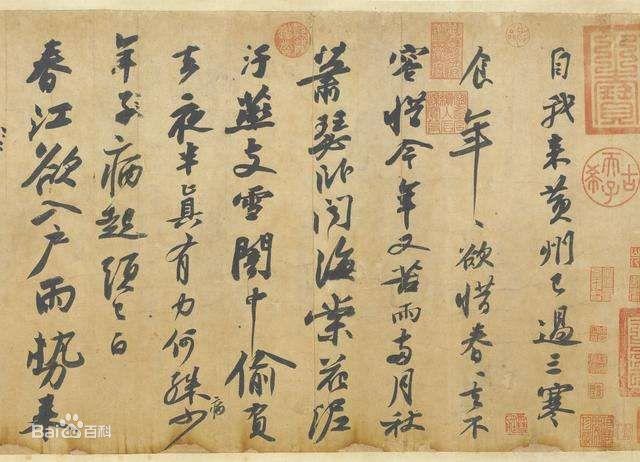 自我来黄州已過三寒
食年〻欲惜春〻去不
容惜今年又苦雨兩月秋
蕭瑟卧聞海棠花泥
汙燕支雪闇中偷負
去夜半真有力何殊少
病
年子病起頭已白
春江欲入戶雨勢来
古希天子
Bai百科